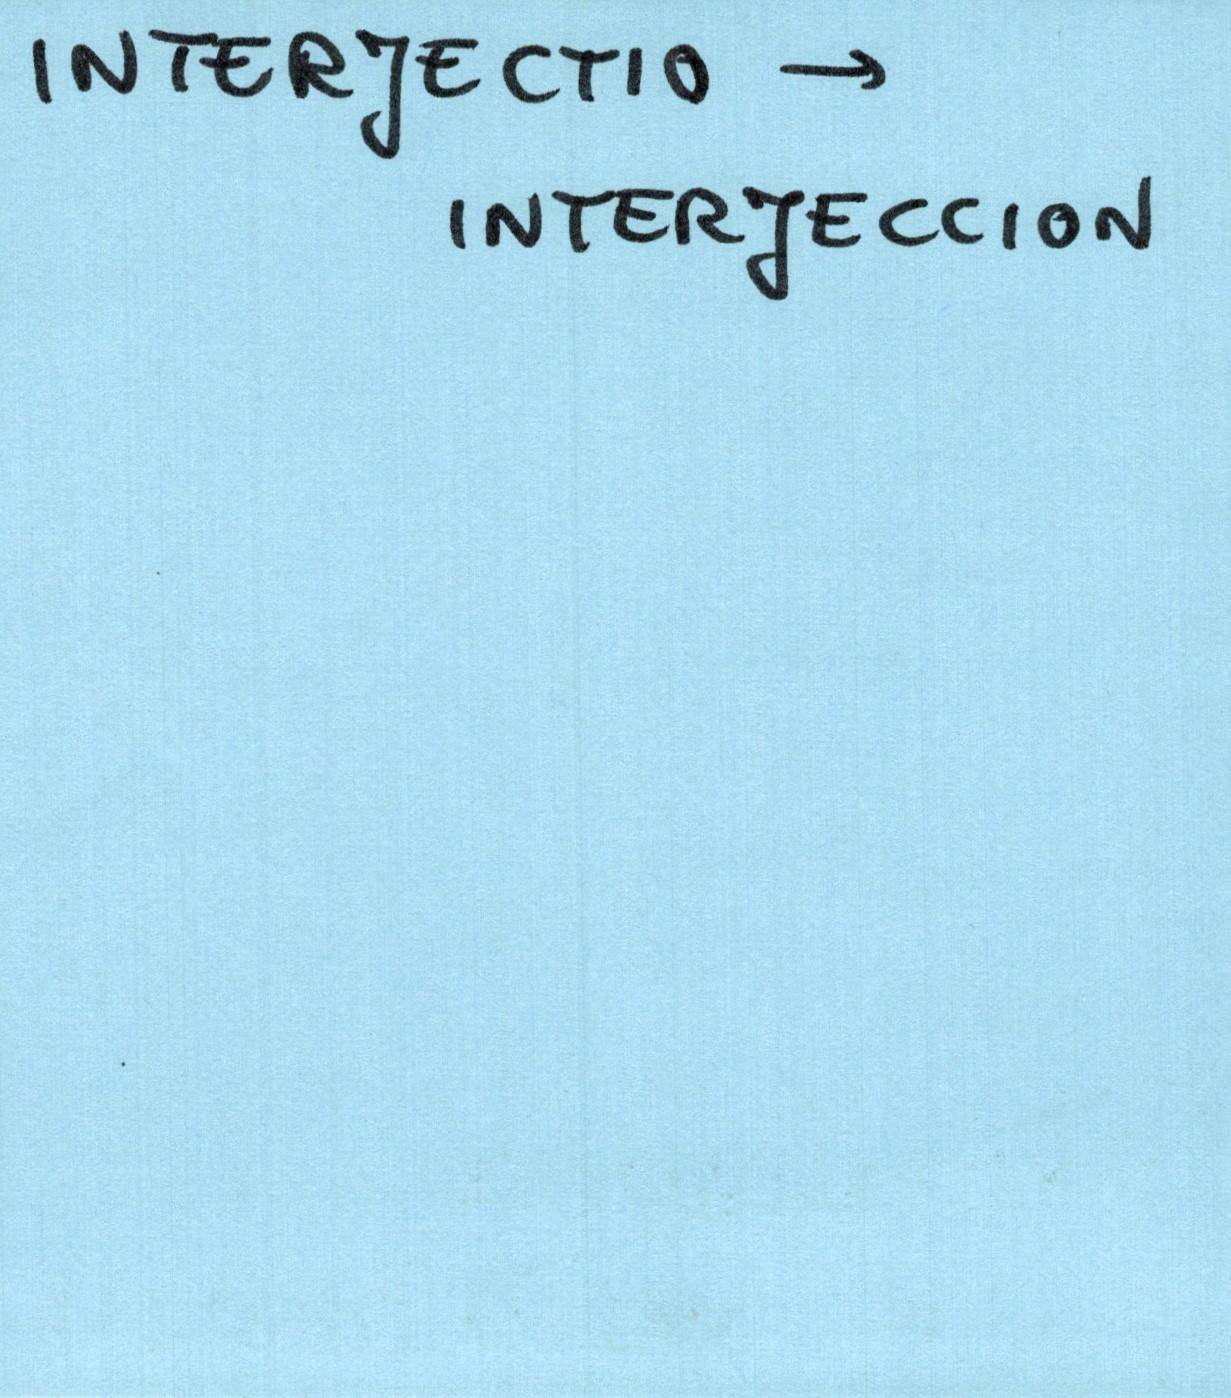 INTERJECTIO →
INTERJECCION